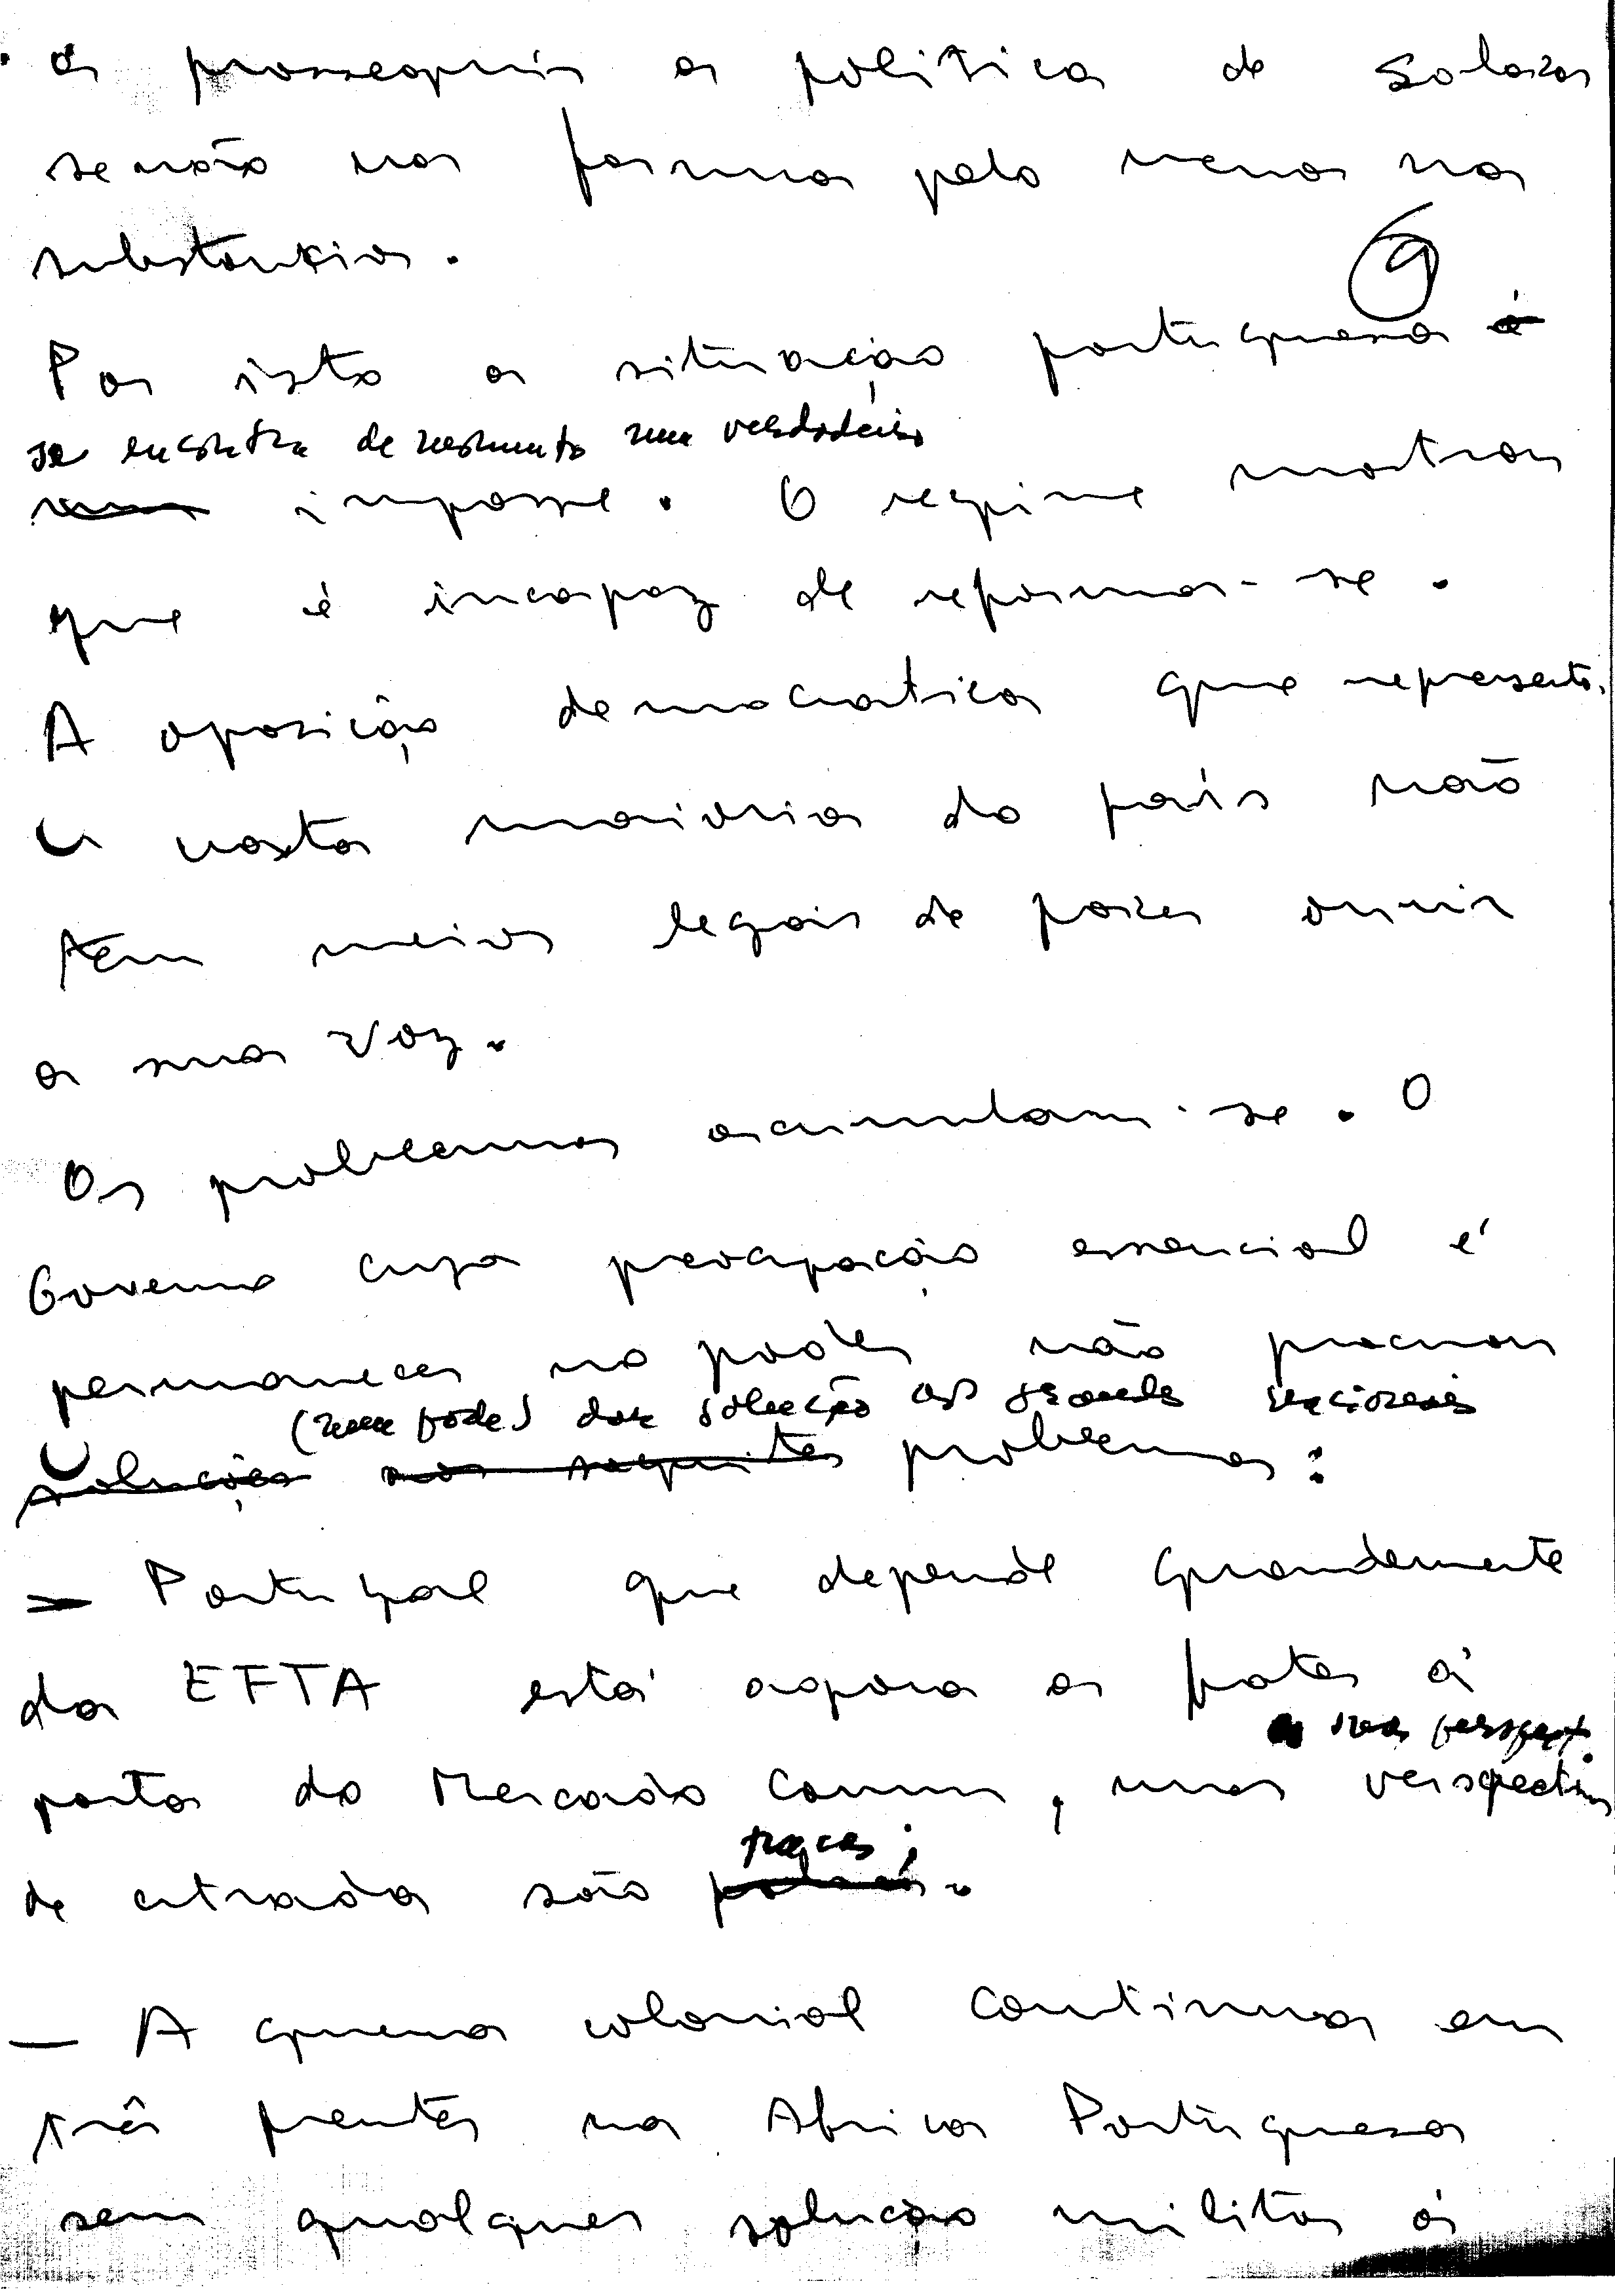 a prosseguir a politica de Salazar
senão na forma pelo menos na
substancia.
9
Por isto a situação portuguesa é
se encontra de momento num verdadeiro
num impasse. O regime mostrou
que é incapaz de reformar-se.
A oposição democratica que representa
a vasta maioria do país não
tem meios legais de fazer ouvir
a sua voz.
Os problemas acumulam-se. O
Governo cuja preocupação essencial é
permanecer no poder não procura
(nem pode) dar solução aos grandes nacionais
soluções aos seguintes problemas:
— Portugal que depende grandemente
da EFTA está agora a bater à
a sua perspect.
porta do Mercado Comum, mas perspectivas
de entrada são
fracas;
— A guerra colonial continua em
três frentes na Africa Portuguesa
sem qualquer solução militar à